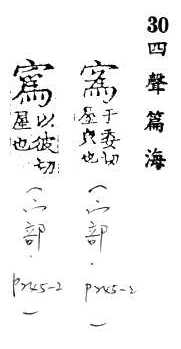 30 四聲篇海
寪 于委切
屋皃也
（宀部．P245-2）
寪 以彼切
屋也
（宀部．P245-2）